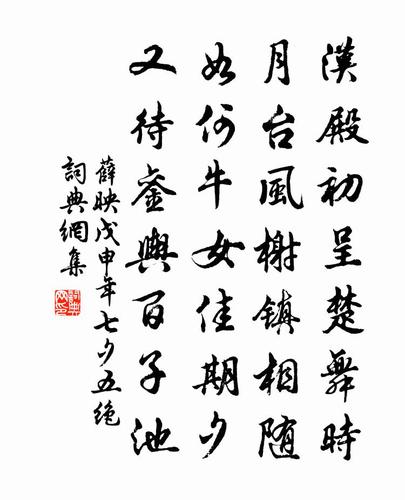 漢殿初呈楚舞時
月台風榭鎮相隨
如何牛女佳期夕
又待銮輿百子池
薛映戊申年七夕五絕
詞典網集